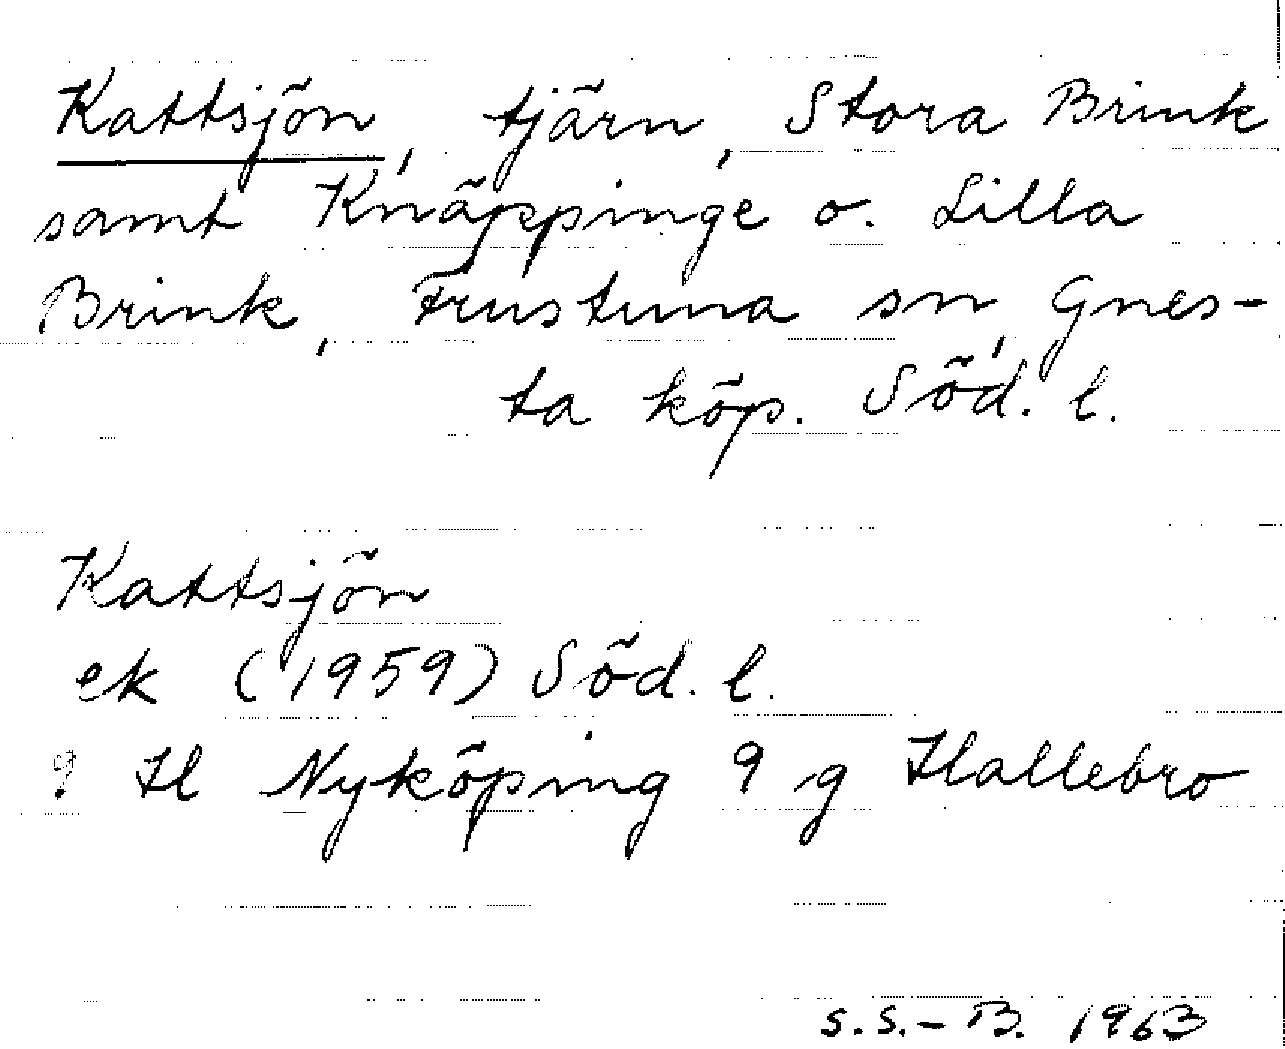 Kattsjön, tjärn, Stora Brink
samt Knäppinge o. Lilla
Brink, Frustuna sn, Gnes-
ta köp. Söd. l.
Kattsjön
ek (1959) Söd. l.
9 H Nyköping 9 g Hallebro
s.s.-B. 1963